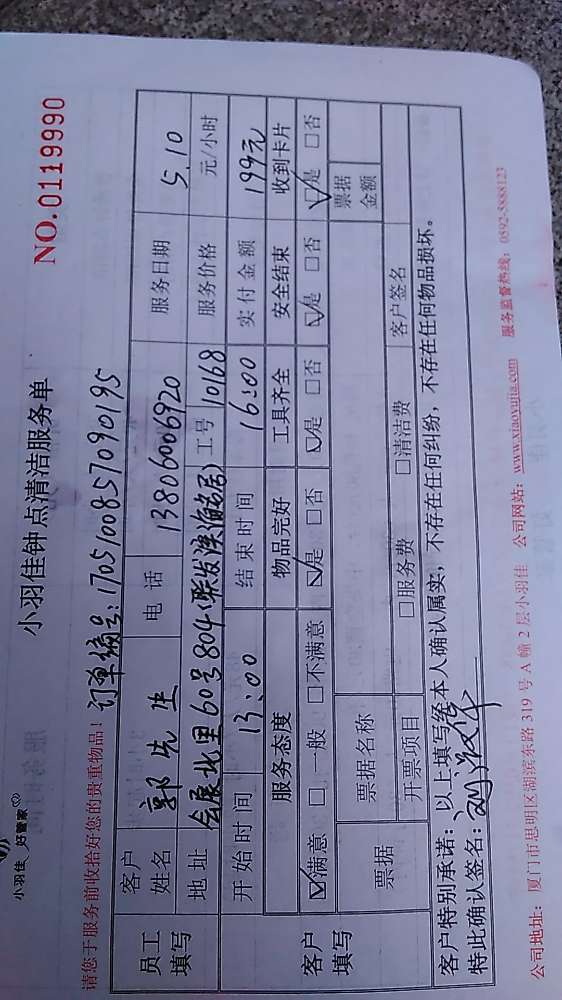 小羽佳 好管家
小羽佳钟点清洁服务单
NO.0119990
请您于服务前收拾好您的贵重物品!
订单编号:1705100857090195
员工填写
客户姓名 郭先生 电话 13806006920 服务日期 5.10
地址 会展北里60号804(联发滨海名居) 工号 10168 服务价格 元/小时
开始时间 13:00 结束时间 16:00 实付金额 199元
客户填写
服务态度 物品完好 工具齐全 安全结束 收到卡片
☑满意 □一般 □不满意 ☑是 □否 ☑是 □否 ☑是 □否 ☑是 □否
票据 票据名称 票据金额
开票项目 □服务费 □清洁费 客户签名
客户特别承诺:以上填写经本人确认属实,不存在任何纠纷,不存在任何物品损坏。
特此确认签名:
公司地址: 厦门市思明区湖滨东路 319 号 A 幢 2 层小羽佳 公司网站:www.xiaoyujia.com 服务监督热线:0592-5888123